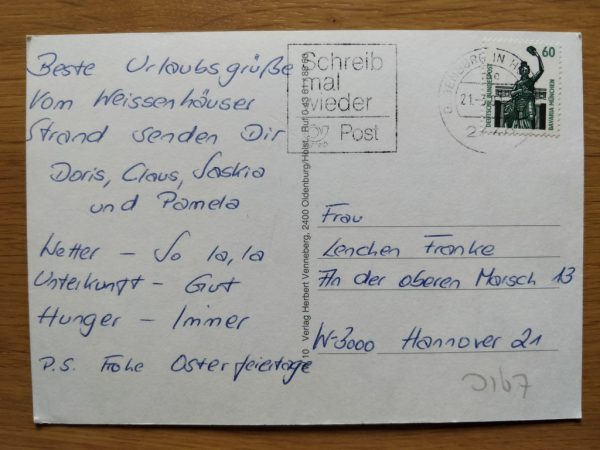 Beste Urlaubsgrüße
vom Weissenhäuser
Strand senden Dir
Doris, Claus, Saskia
und Pamela
Wetter – So la, la
Unterkunft – Gut
Hunger – Immer
P.S. Frohe Osterfeiertage
Schreib
mal
wieder
Post
60
DEUTSCHE BUNDESPOST
BAVARIA MÜNCHEN
Verlag Herbert Venneberg, 2400 Oldenburg/Holst.
Frau
Lenchen Franke
An der oberen Marsch 13
W-3000 Hannover 21